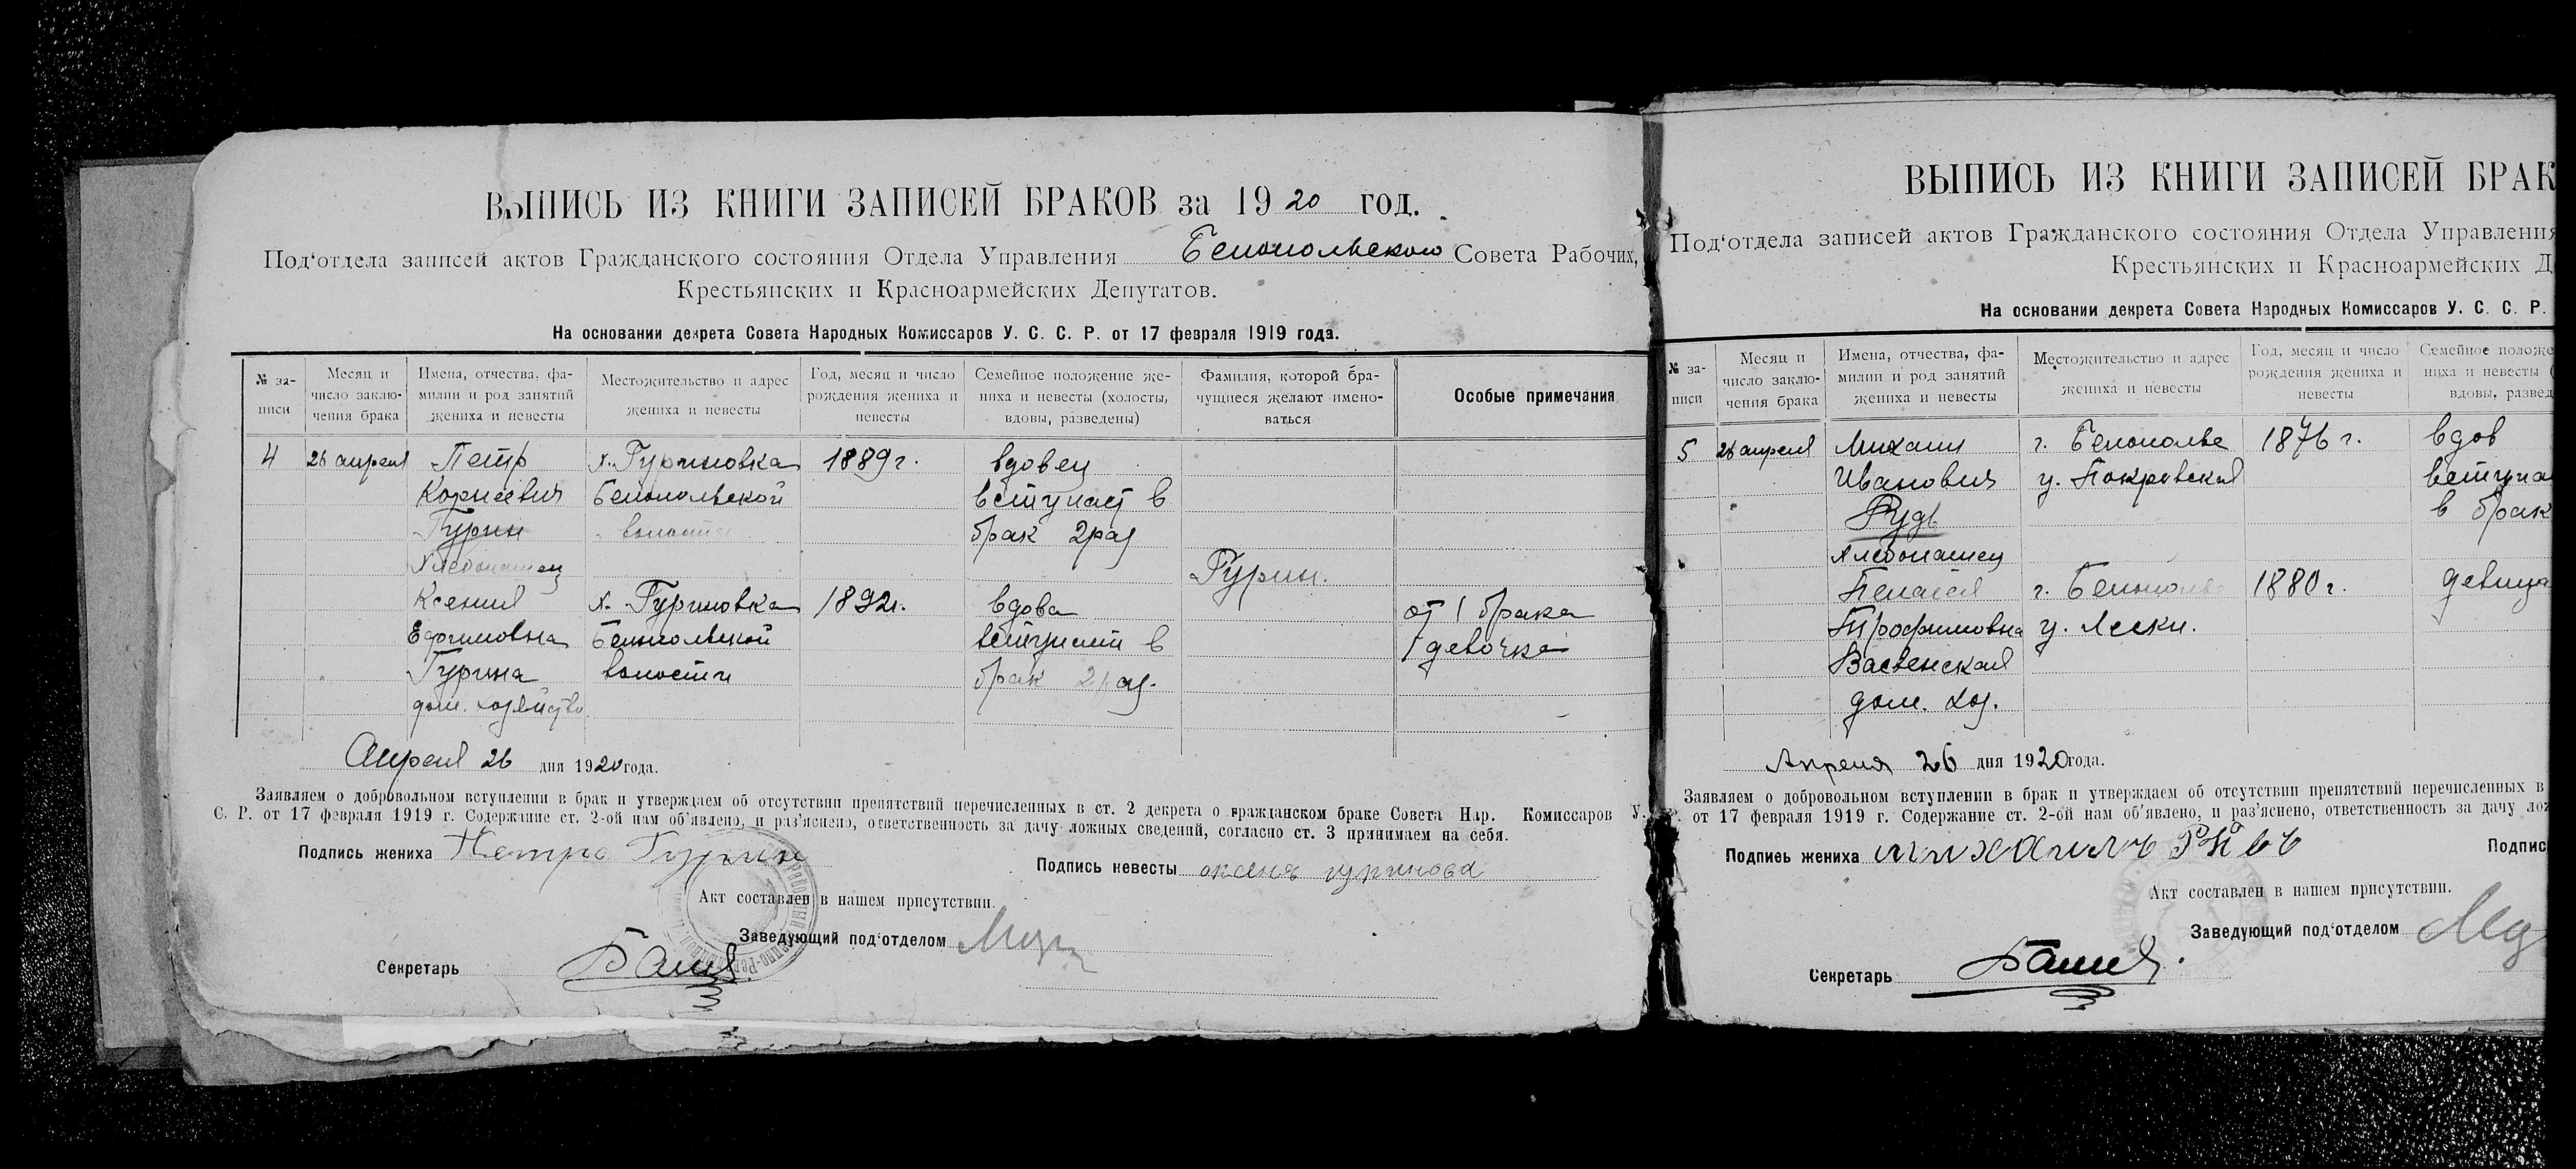 ВЫПИСЬ ИЗ КНИГИ ЗАПИСЕЙ БРАКОВ за 1920 год.
Под‘отдела записей актов Гражданского состояния Отдела Управления Белопольского Совета Рабочих,
Крестьянских и Красноармейских Депутатов.
На основании декрета Совета Народных Комиссаров У. С. С. Р. от 17 февраля 1919 года.
№ за-
писи
Месяц и
число заклю-
чения брака
Имена, отчества, фа-
милии и род занятий
жениха и невесты
Местожительство и адрес
жениха и невесты
Год, месяц и число
рождения жениха и
невесты
Семейное положение же-
ниха и невесты (холосты,
вдовы, разведены)
Фамилия, которой бра-
чущиеся желают имено-
ваться
Особые примечания
4 26 апреля Петр х. Гуриновка 1889 г. вдовец
Корнеевич Белопольской вступает в
Гурин волости брак 2 раз
Хлебопашец Гурин.
Ксения х. Гуриновка 1892 г. вдова от 1 брака
Ефимовна Белопольской вступает в 1 девочка
Гурина волости брак 2 раз.
дом. хозяйство
Апреля 26 дня 1920 года.
Заявляем о добровольном вступлении в брак и утверждаем об отсутствии препятствий перечисленных в ст. 2 декрета о гражданском браке Совета Нар. Комиссаров У.
С. Р. от 17 февраля 1919 г. Содержание ст. 2-ой нам об‘явлено, и раз‘яснено, ответственность за дачу ложных сведений, согласно ст. 3 принимаем на себя.
Подпись жениха Петро Гурин
Подпись невесты оксень гуринова
Акт составлен в нашем присутствии.
Заведующий под‘отделом
Секретарь
ВЫПИСЬ ИЗ КНИГИ ЗАПИСЕЙ БРАК
Под‘отдела записей актов Гражданского состояния Отдела Управления
Крестьянских и Красноармейских Д
На основании декрета Совета Народных Комиссаров У. С. С. Р.
№ за-
писи
Месяц и
число заклю-
чения брака
Имена, отчества, фа-
милии и род занятий
жениха и невесты
Местожительство и адрес
жениха и невесты
Год, месяц и число
рождения жениха и
невесты
Семейное положе
ниха и невесты (
вдовы, развед
5 26 апреля Михаил г. Белополье 1876 г. вдов
Иванович у. Покровская вступа
Рудь в брак
хлебопашец
Пелагея г. Белополье 1880 г. девица
Трофимовна у. Лески.
Васвенская
дом. хоз.
Апреля 26 дня 1920 года.
Заявляем о добровольном вступлении в брак и утверждаем об отсутствии препятствий перечисленных в
Р. от 17 февраля 1919 г. Содержание ст. 2-ой нам об‘явлено, и раз‘яснено, ответственность за дачу лож
Подпись жениха михаилъ
Подпис
Акт составлен в нашем присутствии.
Заведующий под‘отделом
Секретарь